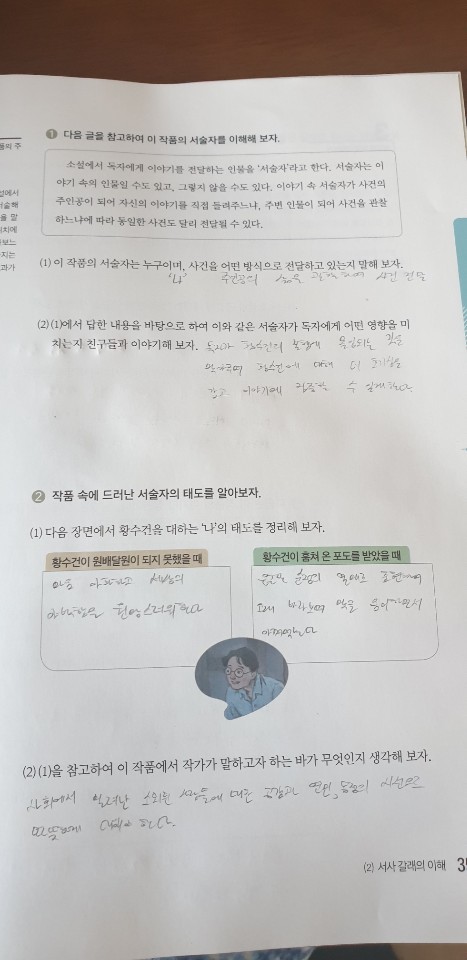 1 다음 글을 참고하여 이 작품의 서술자를 이해해 보자.
소설에서 독자에게 이야기를 전달하는 인물을 '서술자'라고 한다. 서술자는 이
야기 속의 인물일 수도 있고, 그렇지 않을 수도 있다. 이야기 속 서술자가 사건의
주인공이 되어 자신의 이야기를 직접 들려주느냐, 주변 인물이 되어 사건을 관찰
하느냐에 따라 동일한 사건도 달리 전달될 수 있다.
(1) 이 작품의 서술자는 누구이며, 사건을 어떤 방식으로 전달하고 있는지 말해 보자.
'나' 주인공의 삶을 관찰하여 사건 전달
(2) (1)에서 답한 내용을 바탕으로 하여 이와 같은 서술자가 독자에게 어떤 영향을 미
치는지 친구들과 이야기해 보자.
독자가 황수건의
황수건에 대해 더
갖고 이야기에 집중할 수 있게 한다.
2 작품 속에 드러난 서술자의 태도를 알아보자.
(1) 다음 장면에서 황수건을 대하는 '나'의 태도를 정리해 보자.
황수건이 원배달원이 되지 못했을 때
아주 세상의
야박함을 원망스러워한다
황수건이 훔쳐 온 포도를 받았을 때
순정의 열매로 표현하며
오래 바라보며
아껴먹는다
(2) (1)을 참고하여 이 작품에서 작가가 말하고자 하는 바가 무엇인지 생각해 보자.
사회에서 소외된 사람들에 대한 공감과 연민, 동정의 시선으로
따뜻하게 한다.
(2) 서사 갈래의 이해